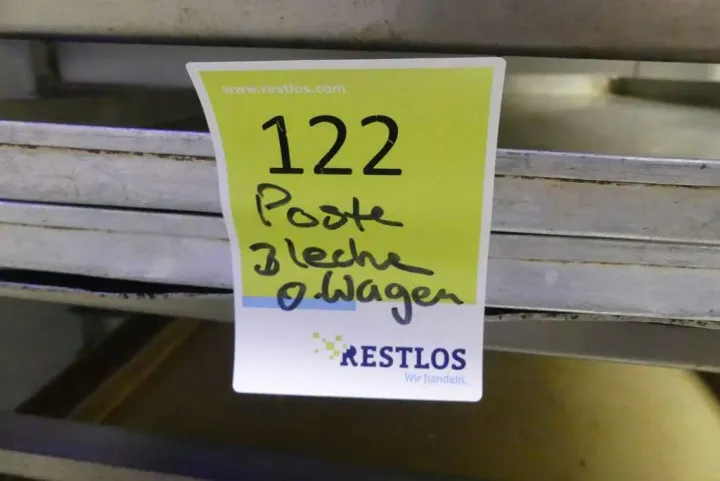 www.restlos.com
122
Poste
Bleche
o. Wagen
RESTLOS
Wir handeln.